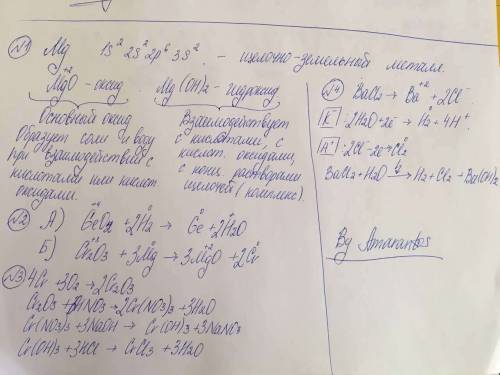 №1 Mg 1s² 2s² 2p⁶ 3s² - щелочно-земельный металл.
Mg⁺²O - оксид Mg(OH)₂ - гидроксид
Основной оксид
Образует соли и воду
при взаимодействии с
кислотами или кислот.
оксидами.
Взаимодействует
с кислотами, с
кислот. оксидами,
с конц. растворами
щелочей (комплекс).
№2 А) GeO₂ + 2H₂ → Ge + 2H₂O
Б) Cr₂O₃ + 3Mg → 3MgO + 2Cr
№3 4Cr + 3O₂ → 2Cr₂O₃
Cr₂O₃ + 6HNO₃ → 2Cr(NO₃)₃ + 3H₂O
Cr(NO₃)₃ + 3NaOH → Cr(OH)₃ + 3NaNO₃
Cr(OH)₃ + 3HCl → CrCl₃ + 3H₂O
№4 BaCl₂ → Ba⁺² + 2Cl⁻
K⁻: 2H₂O + 2e → H₂⁰ + 4H⁺
A⁺: 2Cl⁻ - 2e → Cl₂⁰
BaCl₂ + H₂O → H₂ + Cl₂ + Ba(OH)₂
By Amarantos